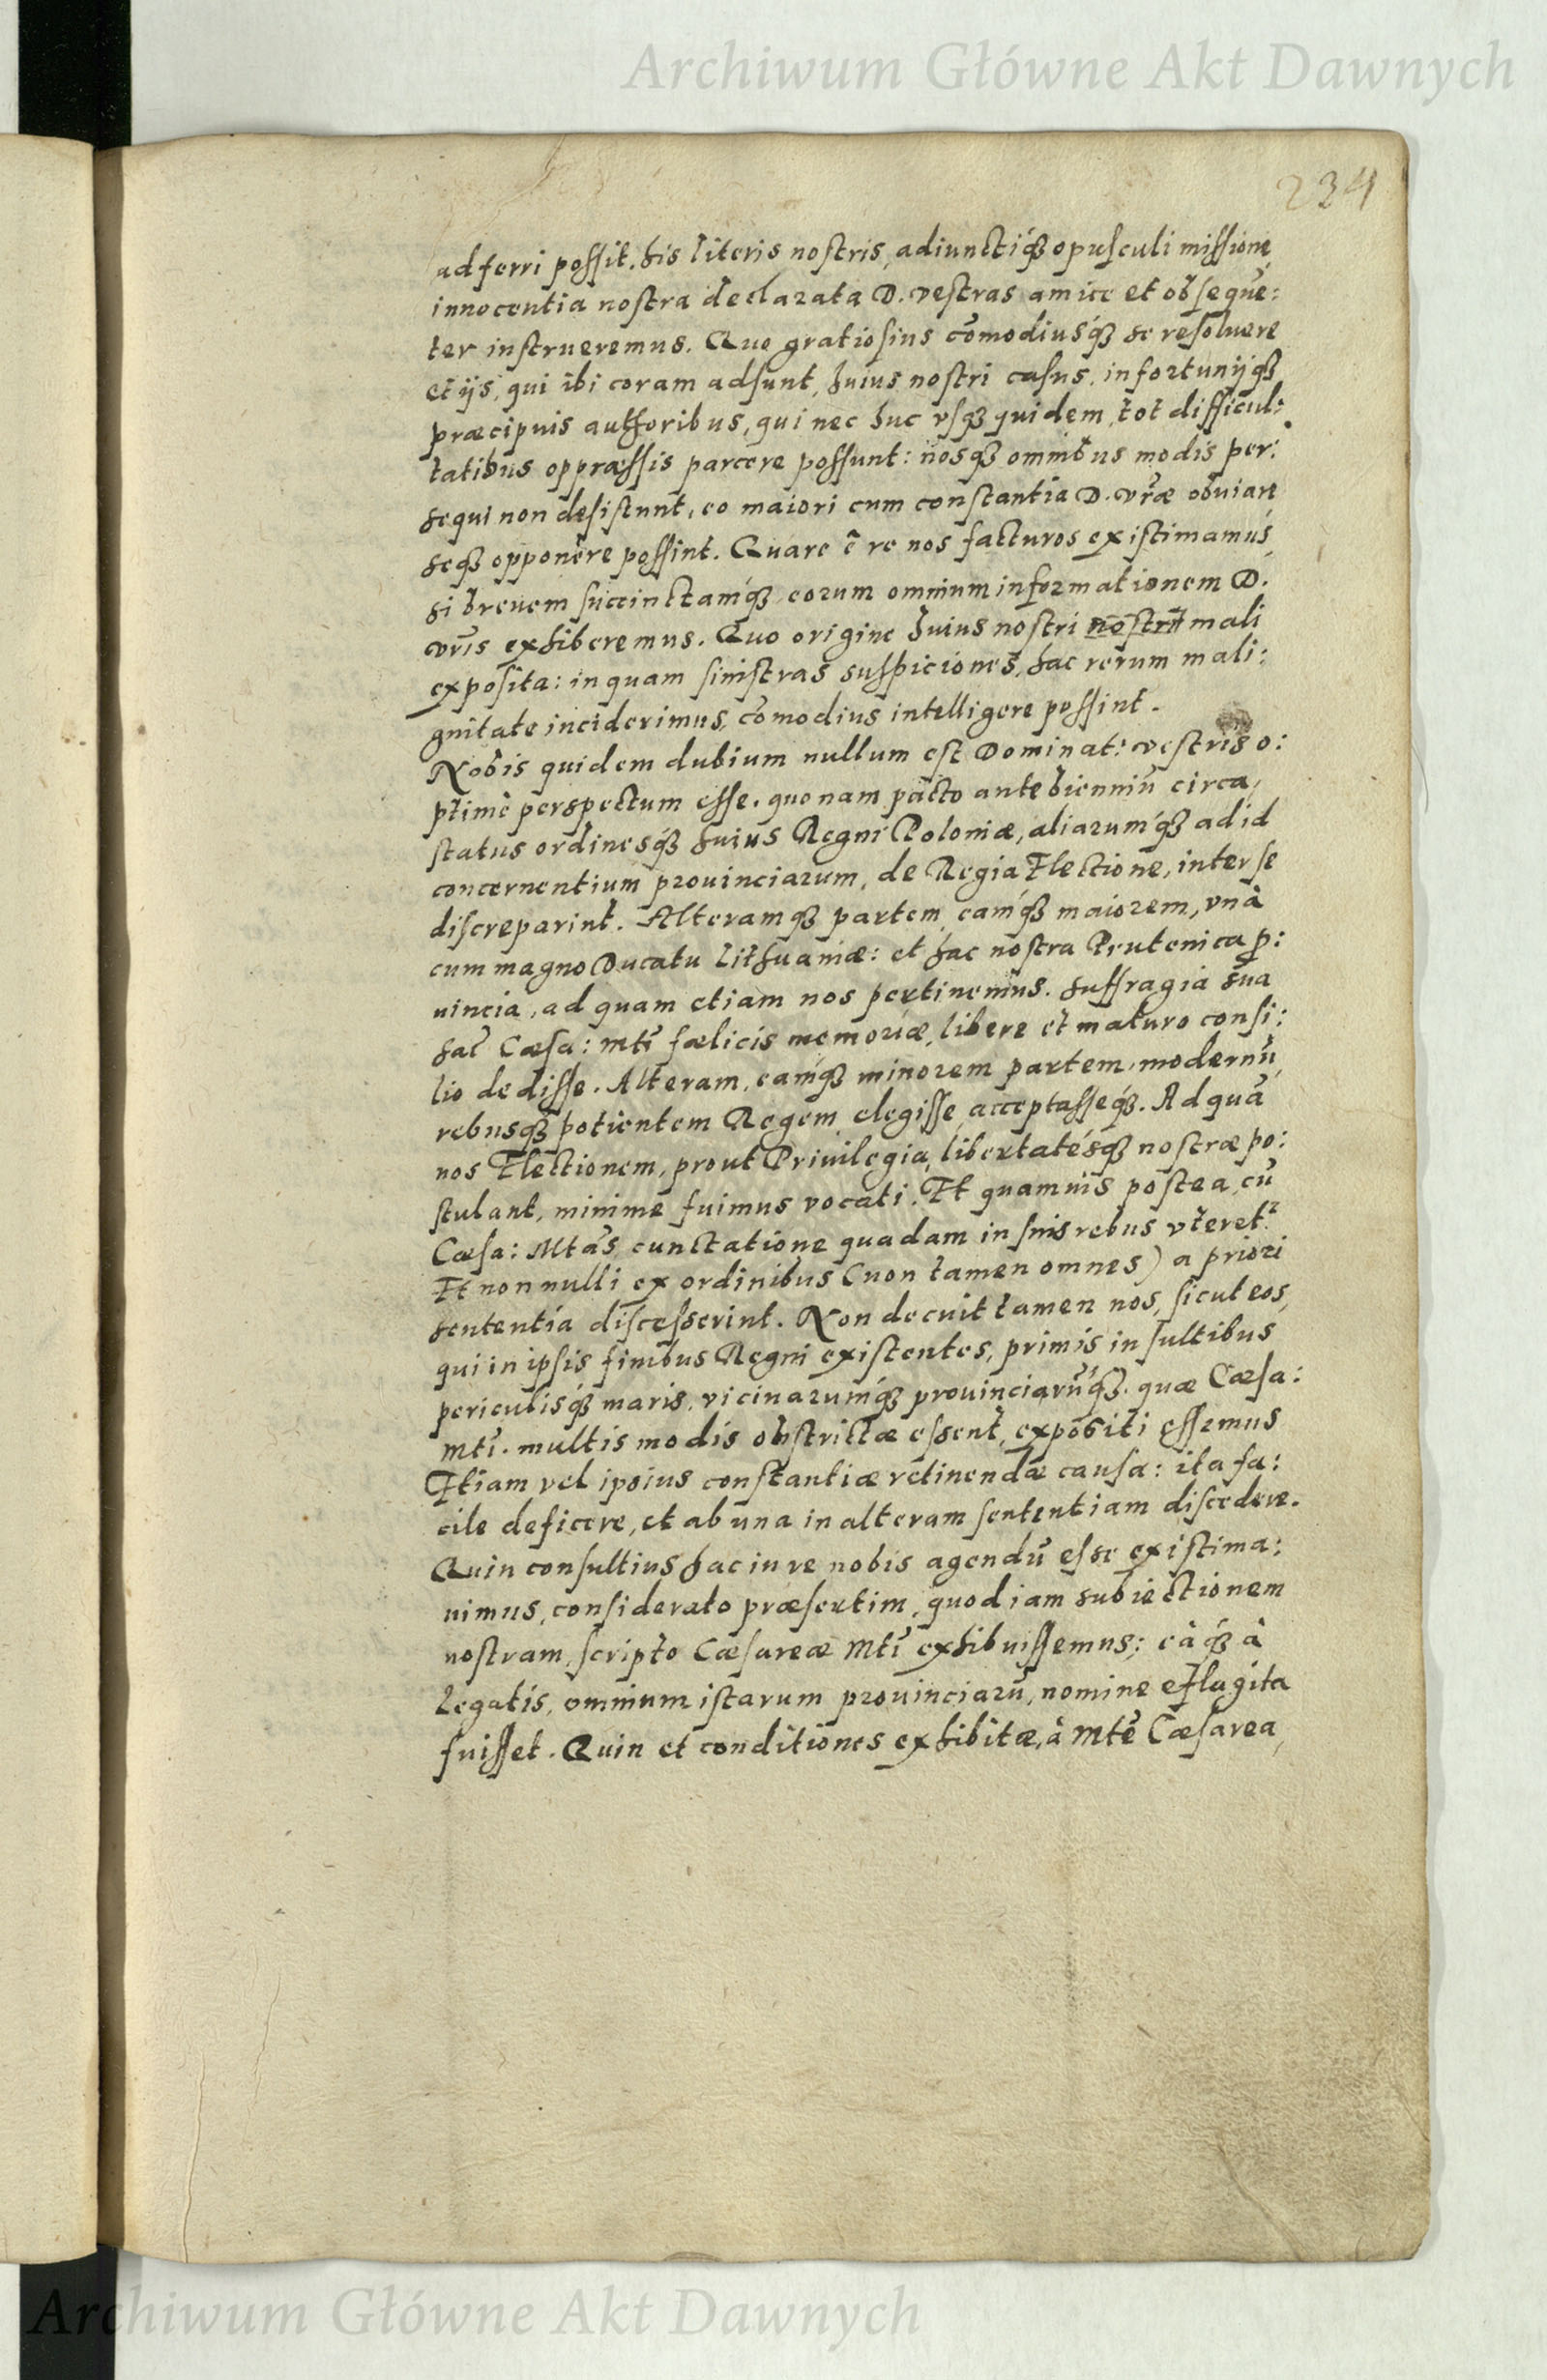 Archiwum Główne Akt Dawnych
234
adferri possit. his literis nostris, adiunctiq́ꝫ opusculi missione,
innocentia nostra declarata D. vestras amice et obseque᷑:
ter instrueremus. Quo gratiosius co᷑modiusq́ꝫ se resoluere
et ijs, qui ibi coram adsunt, huius nostri casus, infortunijqꝫ
præcipuis authoribus, qui nec huc vsqꝫ quidem, tot difficul:
tatibus oppræssis parcere possunt: nosqꝫ omnibus modis per:
sequi non desistunt, eo maiori cum constantia D. vr̃æ obuiare
seqꝫ opponere possint. Quare ẽ re nos facturos existimamus,
si breuem succinctamq́ꝫ eorum omnium informationem D.
vr̃is exhiberemus. Quo origine huius nostri nostri mali
exposita: in quam sinistras suspiciones, hac rerum mali:
gnitate inciderimus, co᷑modius intelligere possint.
Nobis quidem dubium nullum est Dominat: vestris o:
ptimè perspectum esse. quonam pacto ante bienniũ circa,
status ordinesq́ꝫ huius Regni Poloniæ, aliarumq́ꝫ ad id
concernentium prouinciarum, de Regia Electione, inter se
discreparint. Alteramqꝫ partem, eamq́ꝫ maiorem, vnà
cum magno Ducatu Lithuaniæ: et hac nostra Prutenica ꝓ:
uincia, ad quam etiam nos pertinemus. suffragia sua
Sac̃ Cæsa: Mtĩ fælicis memoriæ, libere et maturo consi:
lio dedisse. Alteram, eamq́ꝫ minorem partem, modernũ,
rebusqꝫ potientem Regem elegisse, acceptasseq́ꝫ. Ad quã
nos Electionem, prout Priuilegia, libertatésqꝫ nostræ po:
stulant, minime fuimus vocati. Et quamuis postea, cũ
Cæsa: Mtãs cunctatione quadam in suis rebus vteret᷑
Et nonnulli ex ordinibus (non tamen omnes) a priori
sententia discesserint. Non decuit tamen nos, sicut eos,
qui in ipsis finibus Regni existentes, primis insultibus
periculisq́ꝫ maris, vicinarumq́ꝫ prouinciarũq́ꝫ. quæ Cæsa:
Mtĩ. multis modis obstrictæ essent, expositi essemus
Etiam vel ipsius constantiæ retinendæ causa: ita fa:
cile deficere, et ab una in alteram sententiam discedere.
Quin consultius hac in re nobis agendũ esse existima:
uimus, considerato præsertim, quod iam subiectionem
nostram, scripto Cæsareæ Mtĩ exhibuissemus; eàq́ꝫ à
Legatis, omnium istarum prouinciarũ, nomine efflagita
fuisset. Quin et conditiones exhibitæ, à Mtẽ Cæsarea,
Archiwum Główne Akt Dawnych